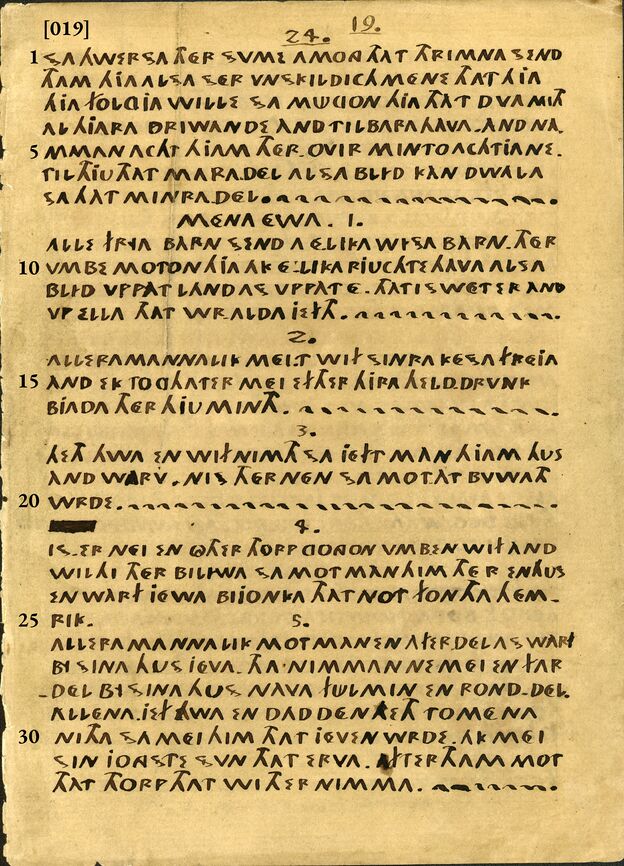 [019]
24. 19.
1 SA HWERSA THER SVME AMONG THAT THRIMNA SEND
THAM HIA ALSA SER VNSKILDICH MENE THAT HIA
HIA FOLGIA WILLE SA MÜGON HIA THAT DVA MITH
AL HIARA BRIWANDE AND TILBARA HAVA. AND NA.
5 MMAN ACHT HIAM THER. OVIR MIN TO ACHTIANE.
TIL THIU THAT MARA.DEL ALSA BLYD KAN DWALA
SA HAT MINRA.DEL.
MENA EWA. 1.
ALLE FRYA BARN SEND A E.LIKA WYSA BARN. THER
10 VMBE MOTON HIA AK E.LIKA RIUCHTE HAVA ALSA
BLYD VPPAT LAND AS VPPAT E. THAT IS WETER AND
VP ELLA THAT WR.ALDA IEFTH.
2.
ALLERA MANNALIK MEI.T WIF SINRA KESA FREIA
15 AND EK TOGHATER MEI EFTHER HIRA HELD.DRVNK
BIADA THER HIU MINTH.
3.
HETH HWA EN WIF NIMTH SA IEFT MAN HIAM HUS
AND WARV. NIS THER NEN SA MOT.ÀT BVWATH
20 WRDE.
4.
IS.ER NEI EN OTHER THORP GONGON VMB EN WIF AND
WIL HI THER BILIWA SA MOT MAN HIM THER EN HUS
EN WARF IEWA BIJONKA THAT NOT FON THA HEM.
25 RIK. 5.
ALLERA MANNALIK MOT MAN EN AFTER.DEL AS WARF
BI SINA HUS IEVA. THA NIMMAN NE MEI EN FAR
.DEL BY SINA HUS NAVA FÜL MIN EN ROND.DEL.
ALLENA. IEF HWA EN DAD DEN HETH TO MENA
30 NITHA SA MEI HIM THAT IEVEN WRDE. AK MEI
SIN IONGSTE SVN THAT ERVA. AFTER THAM MOT
THAT THORP THAT WITHER NIMMA.